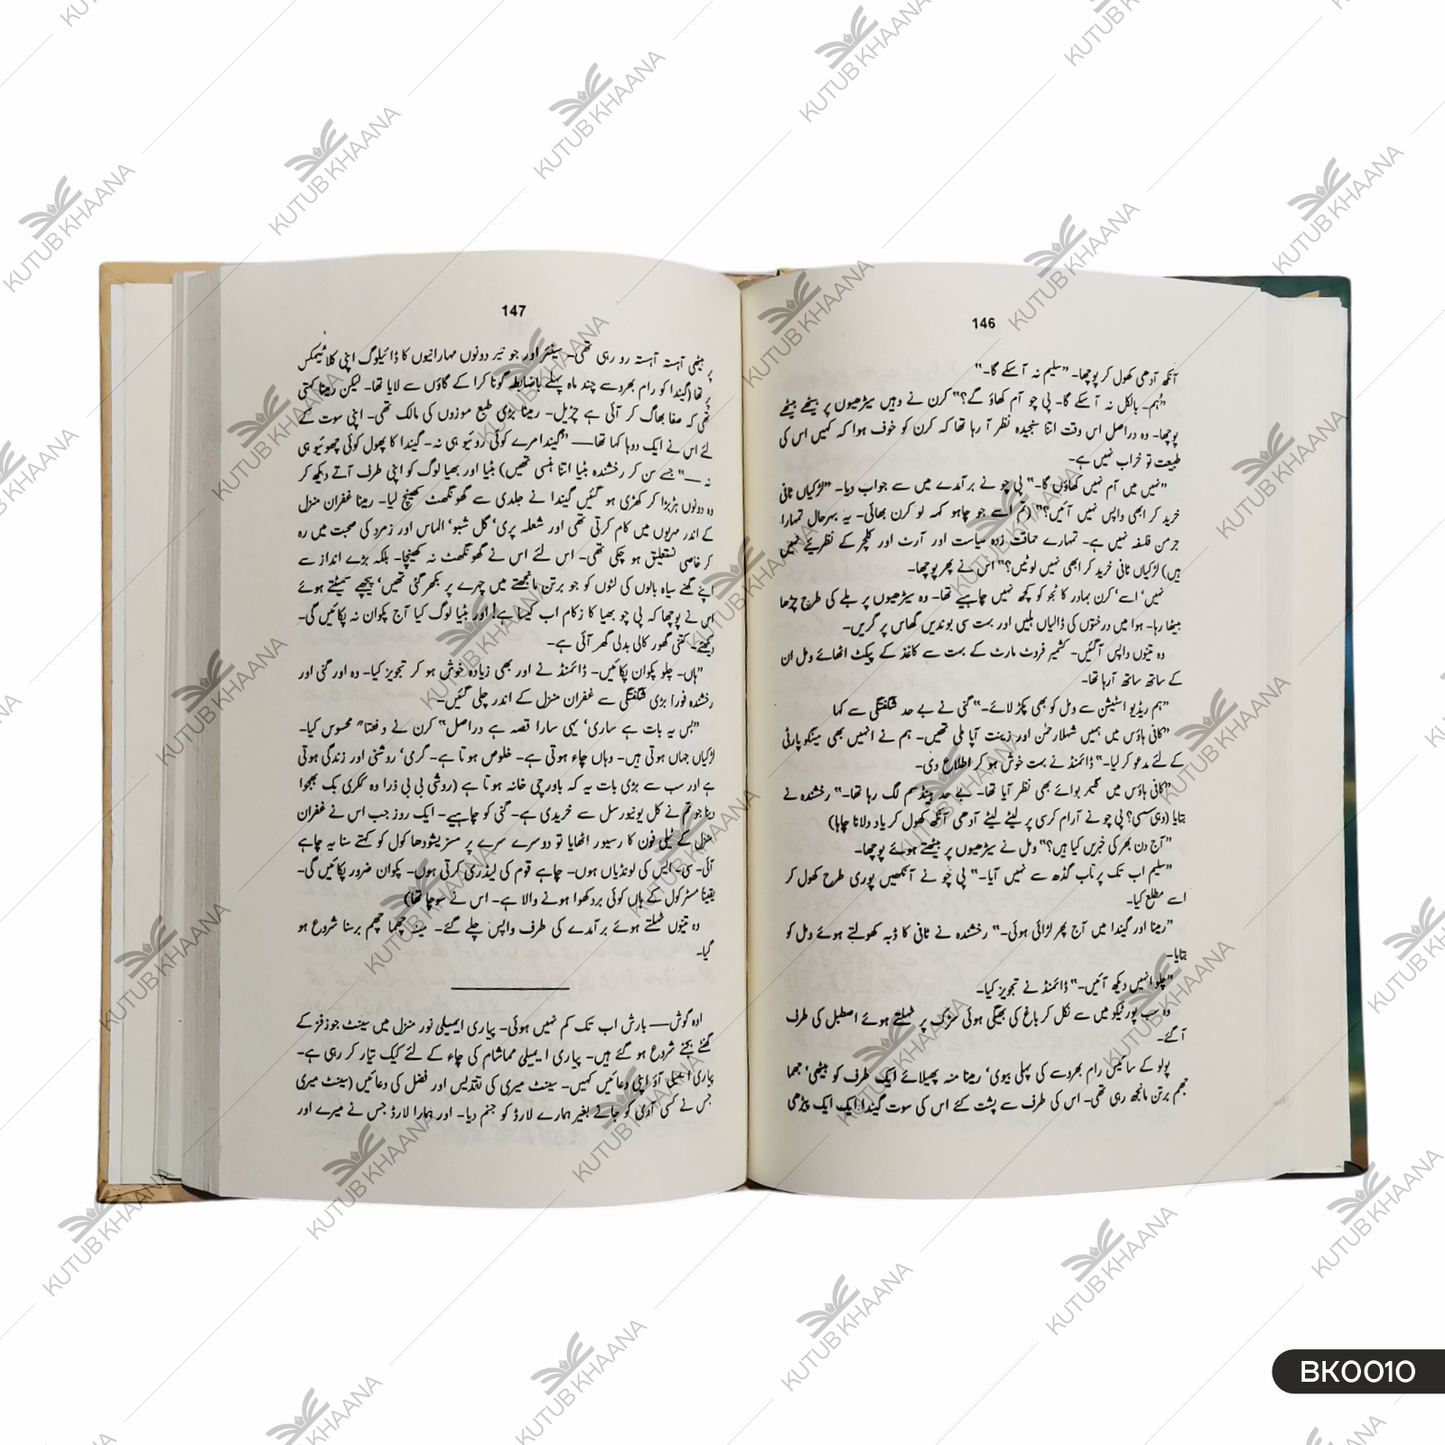 146
آنکھ آدھی کھول کر پوچھا۔ "سلیم نہ آسکے گا۔"
"ہُم۔ بالکل نہ آسکے گا۔ پی چو آم کھاؤ گے؟" کرن نے وہیں سیڑھیوں پر بیٹھے بیٹھے
پوچھا۔ وہ دراصل اس وقت اتنا سنجیدہ نظر آ رہا تھا کہ کرن کو خوف ہوا کہ کہیں اس کی
طبیعت تو خراب نہیں ہے۔
"نہیں میں آم نہیں کھاؤں گا۔" پی چو نے برآمدے میں سے جواب دیا۔ "لڑکیاں ٹافی
خرید کر ابھی واپس نہیں آئیں؟" (تم اسے جو چاہو کہہ لو کرن بھائی۔ یہ بہرحال تمہارا
جرمن فلسفہ نہیں ہے۔ تمہارے حماقت زدہ سیاست اور آرٹ اور کلچر کے نظریئے نہیں
ہیں) لڑکیاں ٹافی خرید کر ابھی نہیں لوٹیں؟" اس نے پھر پوچھا۔
نہیں' اسے' کرن بہادر کاٹجو کو کچھ نہیں چاہیے تھا۔ وہ سیڑھیوں پر بلے کی طرح چڑھا
بیٹھا رہا۔ ہوا میں درختوں کی ڈالیاں ہلیں اور بہت سی بوندیں گھاس پر گریں۔
وہ تینوں واپس آگئیں۔ کشمیر فروٹ مارٹ کے بہت سے کاغذ کے پیکٹ اٹھائے وِمل ان
کے ساتھ ساتھ آرہا تھا۔
"ہم ریڈیو اسٹیشن سے وِمل کو بھی پکڑ لائے۔" گنی نے بے حد شگفتگی سے کہا
"کافی ہاؤس میں ہمیں شہلا رحمٰن اور زینت آپا ملی تھیں۔ ہم نے انہیں بھی مینگو پارٹی
کے لئے مدعو کر لیا۔" ڈائمنڈ نے بہت خوش ہو کر اطلاع دی۔
"کافی ہاؤس میں گلیمر بوائے بھی نظر آیا تھا۔ بے حد ہینڈسم لگ رہا تھا۔" رخشندہ نے
بتایا (وہی سی؟ پی چو نے آرام کرسی پر لیٹے لیٹے آدھی آنکھ کھول کر یاد دلانا چاہا)
"آج دن بھر کی خبریں کیا ہیں؟" وِمل نے سیڑھیوں پر بیٹھتے ہوئے پوچھا۔
"سلیم اب تک پرتاب گڈھ سے نہیں آیا۔" پی چو نے آنکھیں پوری طرح کھول کر
اسے مطلع کیا۔
"رمینا اور گیندا میں آج پھر لڑائی ہوئی۔" رخشندہ نے ٹافی کا ڈبہ کھولتے ہوئے وِمل کو
بتایا۔
"چلو انہیں دیکھ آئیں۔" ڈائمنڈ نے تجویز کیا۔
وہ سب پورٹیکو میں سے نکل کر باغ کی بھیگی ہوئی سڑک پر ٹہلتے ہوئے اصطبل کی طرف
آگئے۔
پولو کے سائیس رام بھروسے کی پہلی بیوی' رمینا منہ پھیلائے ایک طرف کو بیٹھی' جھما
جھم برتن مانجھ رہی تھی۔ اس کی طرف سے پشت کئے اس کی سوت گیندا ایک ایک پیڑھی
147
پر بیٹھی آہستہ آہستہ رو رہی تھی۔ سینئر اور جونیئر دونوں مہارانیوں کا ڈائیلوگ اپنی کلائمیکس
پر تھا (گیندا کو رام بھروسے چند ماہ پہلے باضابطہ گونا کرا کے گاؤں سے لایا تھا۔ لیکن رمینا کہتی
تھی کہ صفا بھاگ کر آئی ہے چڑیل۔ رمینا بڑی طبع موزوں کی مالک تھی۔ اپنی سوت کے
لئے اس نے ایک دوہا کہا تھا— "گیندا مرے کوئی روئیو ہی نہ۔ گیندا کا پھول کوئی چھوئیو ہی
نہ —" جسے سن کر رخشندہ بٹیا اتنا ہنسی تھیں) بٹیا اور بھیا لوگ کو اپنی طرف آتے دیکھ کر
وہ دونوں ہڑبڑا کر کھڑی ہو گئیں گیندا نے جلدی سے گھونگھٹ کھینچ لیا۔ رمینا غفران منزل
کے اندر مہریوں میں کام کرتی تھی اور شعلہ پری' گل شبو' الماس اور زمرد کی صحبت میں رہ
کر خاصی نستعلیق ہو چکی تھی۔ اس لئے اس نے گھونگھٹ نہ کھینچا۔ بلکہ بڑے انداز سے
اپنے گھنے سیاہ بالوں کی لٹوں کو جو برتن مانجھتے میں چہرے پر بکھر گئی تھیں' پیچھے سمیٹتے ہوئے
اس نے پوچھا کہ پی چو بھیا کا زکام اب کیسا ہے! اور بٹیا لوگ کیا آج پکوان نہ پکائیں گی۔
دیکھئے۔ کتنی گھور کالی بدلی گھر آئی ہے۔
"ہاں۔ چلو پکوان پکائیں۔ ڈائمنڈ نے اور بھی زیادہ خوش ہو کر تجویز کیا۔ وہ اور گنی اور
رخشندہ فوراً بڑی شگفتگی سے غفران منزل کے اندر چلی گئیں۔
"بس یہ بات ہے ساری' یہی سارا قصہ ہے دراصل" کرن نے دفعتاً محسوس کیا۔
لڑکیاں جہاں ہوتی ہیں۔ وہاں چاء ہوتی ہے۔ خلوص ہوتا ہے۔ گرمی' روشنی اور زندگی ہوتی
ہے اور سب سے بڑی بات یہ کہ باورچی خانہ ہوتا ہے (روشی بی بی ذرا وہ ککری بک بھجوا
دینا جو تم نے کل یونیورسل سے خریدی ہے۔ گنی کو چاہیے۔ ایک روز جب اس نے غفران
منزل کے ٹیلی فون کا رسیور اٹھایا تو دوسرے سرے پر مسز یشودھا کول کو کہتے سنا یہ چاہے
آئی۔ سی۔ ایس کی لونڈیاں ہوں۔ چاہے قوم کی لیڈری کرتی ہوں۔ پکوان ضرور پکائیں گی۔
یقیناً مسٹر کول کے ہاں کوئی بردکھوا ہونے والا ہے۔ اس نے سوچا تھا)
وہ تینوں ٹہلتے ہوئے برآمدے کی طرف واپس چلے گئے۔ مینہ چھما چھم برسنا شروع ہو
گیا۔
اوہ گوش — بارش اب تک کم نہیں ہوئی۔ پیاری ایمیلی نور منزل میں سینٹ جوزفز کے
گھنٹے بجنے شروع ہو گئے ہیں۔ پیاری ایمیلی مماشام کی چاء کے لئے کیک تیار کر رہی ہے۔
پیاری ایمیلی آؤ اپنی دعائیں کہیں۔ سینٹ میری کی تقدیس اور فضل کی دعائیں (سینٹ میری
جس نے کسی آدمی کو جانے بغیر ہمارے لارڈ کو جنم دیا۔ اور ہمارا لارڈ جس نے میرے اور
KUTUB KHAANA
BK0010